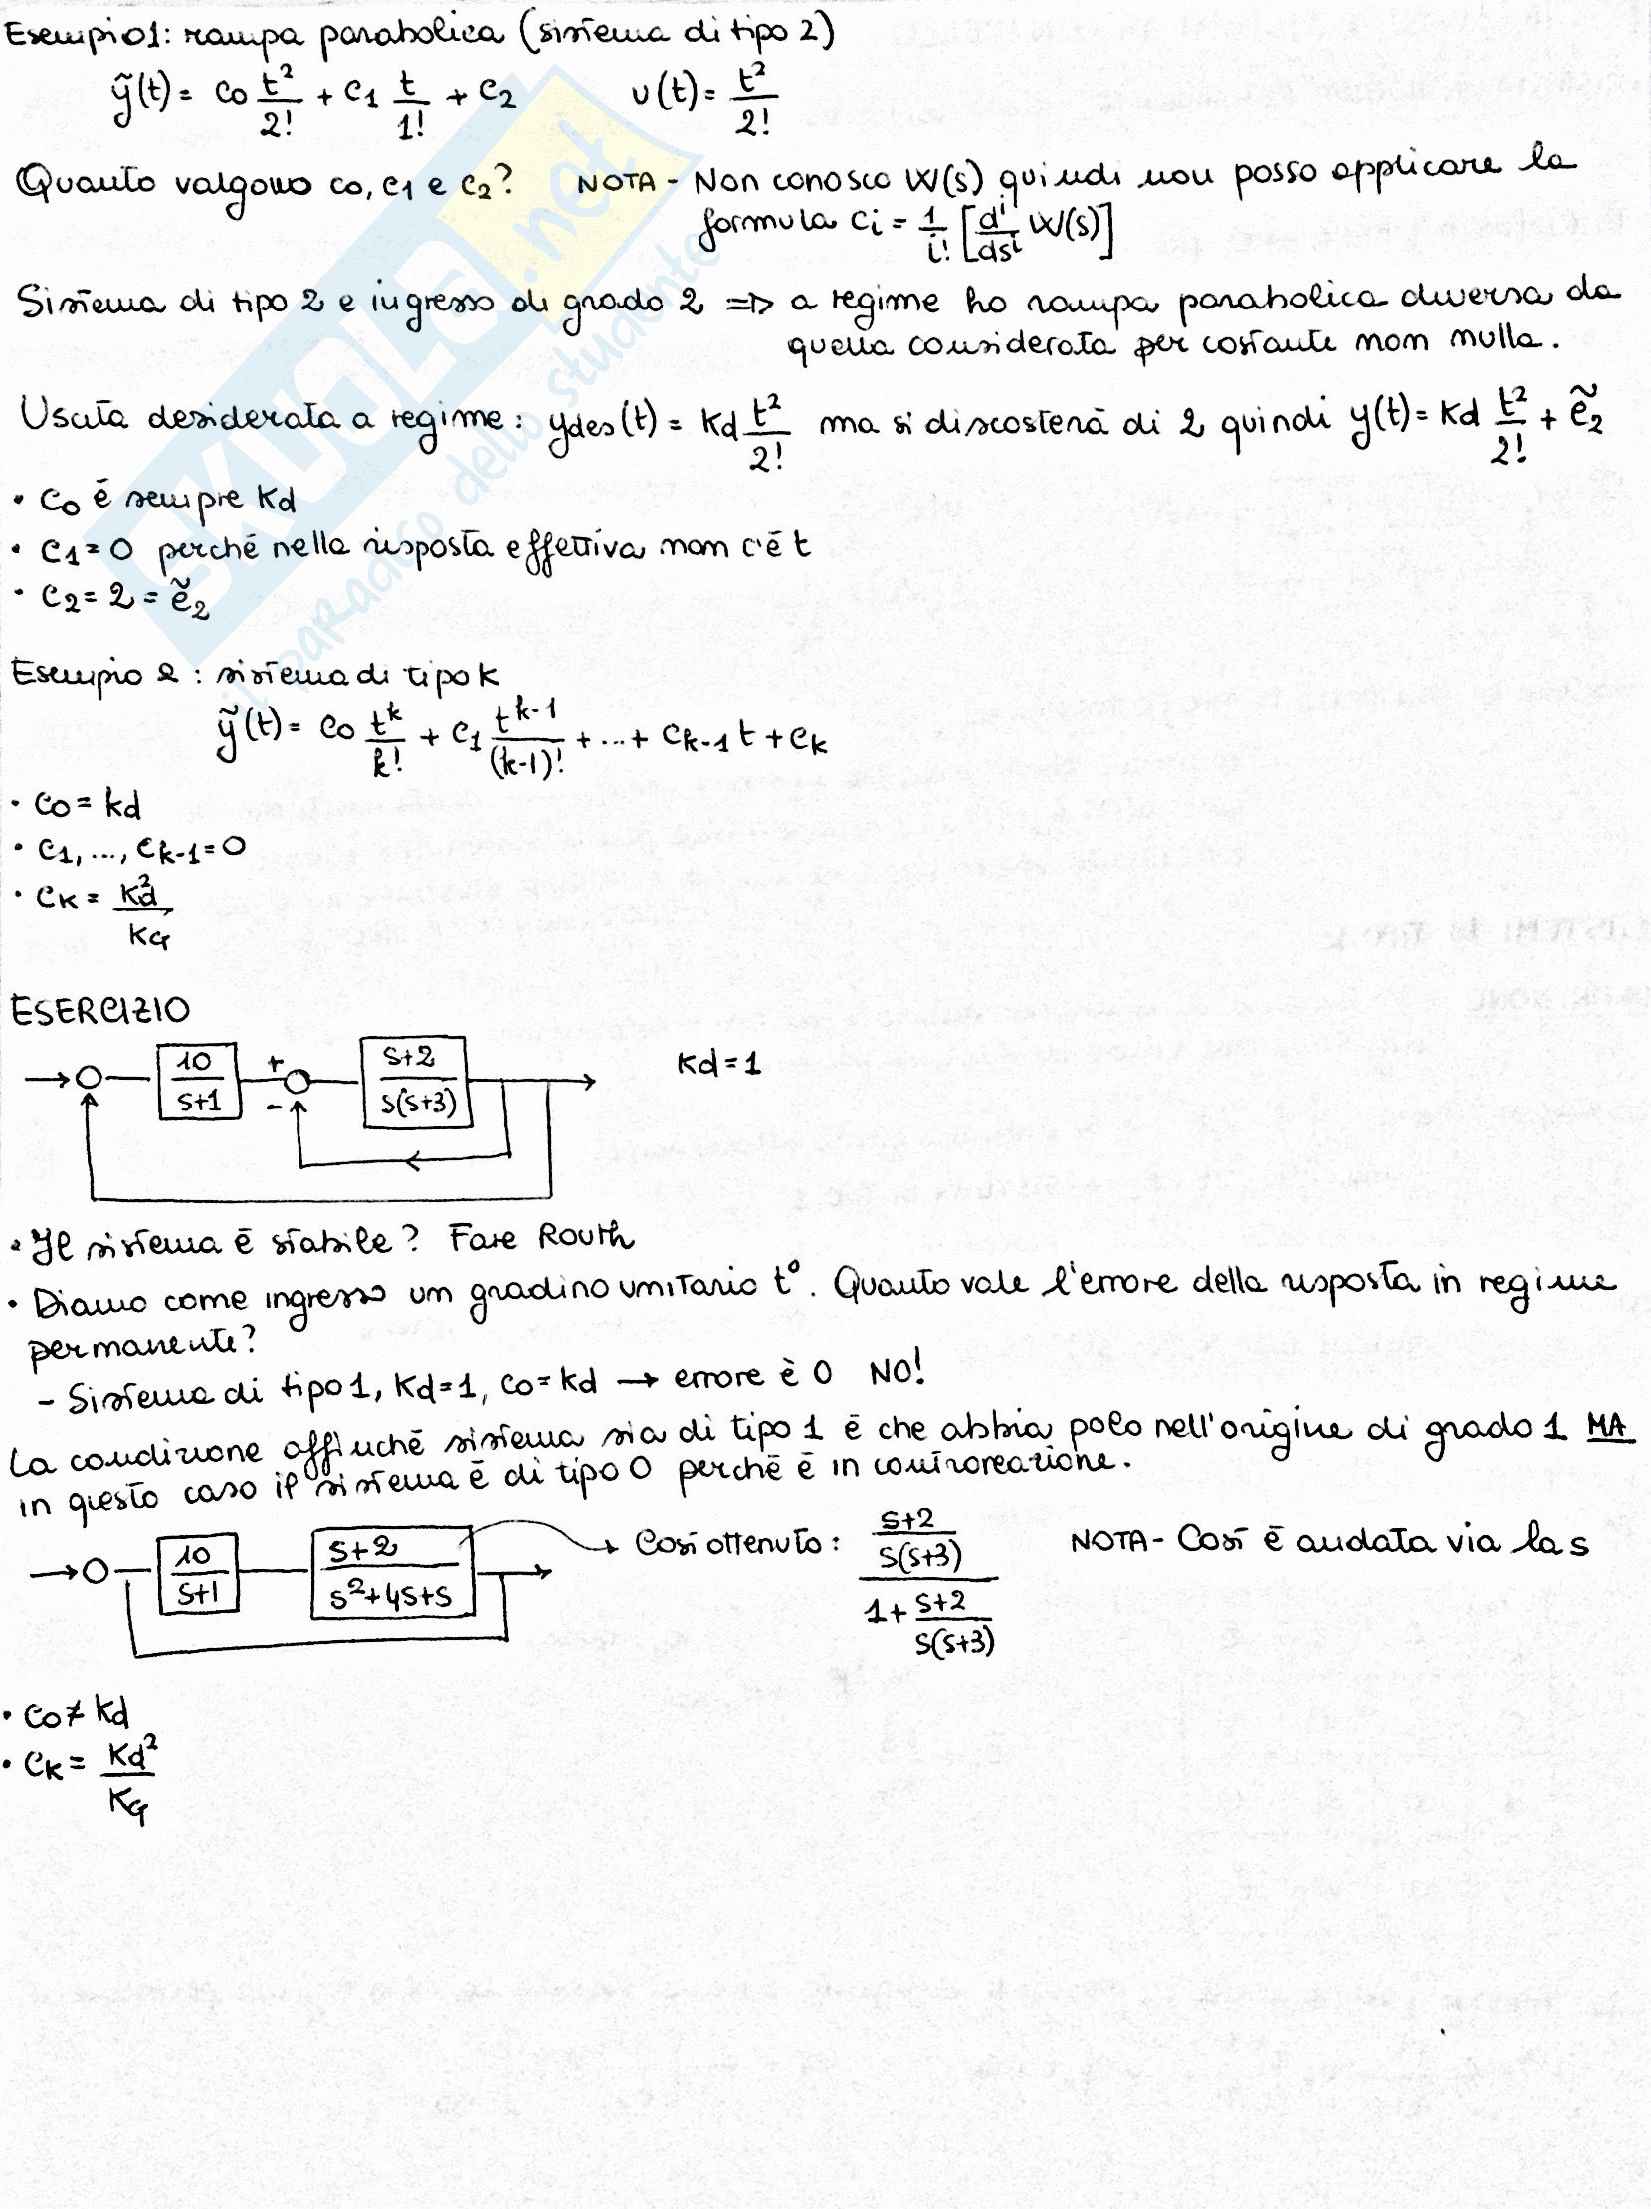 Esempio 1: rampa parabolica (sistema di tipo 2)
ỹ(t) = c0 t²/2! + c1 t/1! + c2 u(t) = t²/2!
Quanto valgono c0, c1 e c2? NOTA - Non conosco W(s) quindi non posso applicare la
formula ci = 1/i! [d^i/ds^i W(s)]
Sistema di tipo 2 e ingresso di grado 2 => a regime ho rampa parabolica diversa da
quella considerata per costante non nulla.
Uscita desiderata a regime: ydes(t) = Kd t²/2! ma si discosterà di 2 quindi y(t) = Kd t²/2! + ẽ2
• c0 è sempre Kd
• c1 = 0 perché nella risposta effettiva non c'è t
• c2 = 2 = ẽ2
Esempio 2: sistema di tipo k
ỹ(t) = c0 t^k/k! + c1 t^(k-1)/(k-1)! + ... + ck-1 t + ck
• c0 = kd
• c1, ..., ck-1 = 0
• ck = Kd²/KG
ESERCIZIO
10/(s+1) + - (s+2)/(s(s+3)) Kd = 1
• Il sistema è stabile? Fare Routh
• Diamo come ingresso un gradino unitario t⁰. Quanto vale l'errore della risposta in regime
permanente?
- Sistema di tipo 1, Kd=1, c0=kd → errore è 0 NO!
La condizione affinché sistema sia di tipo 1 è che abbia polo nell'origine di grado 1 MA
in questo caso il sistema è di tipo 0 perché è in controreazione.
10/(s+1) (s+2)/(s²+4s+s) → Così ottenuto: ((s+2)/(s(s+3)))/(1+(s+2)/(s(s+3))) NOTA - Così è andata via la s
• c0 ≠ kd
• ck = Kd²/KG
SKUOLA.net
il paradiso dello studente